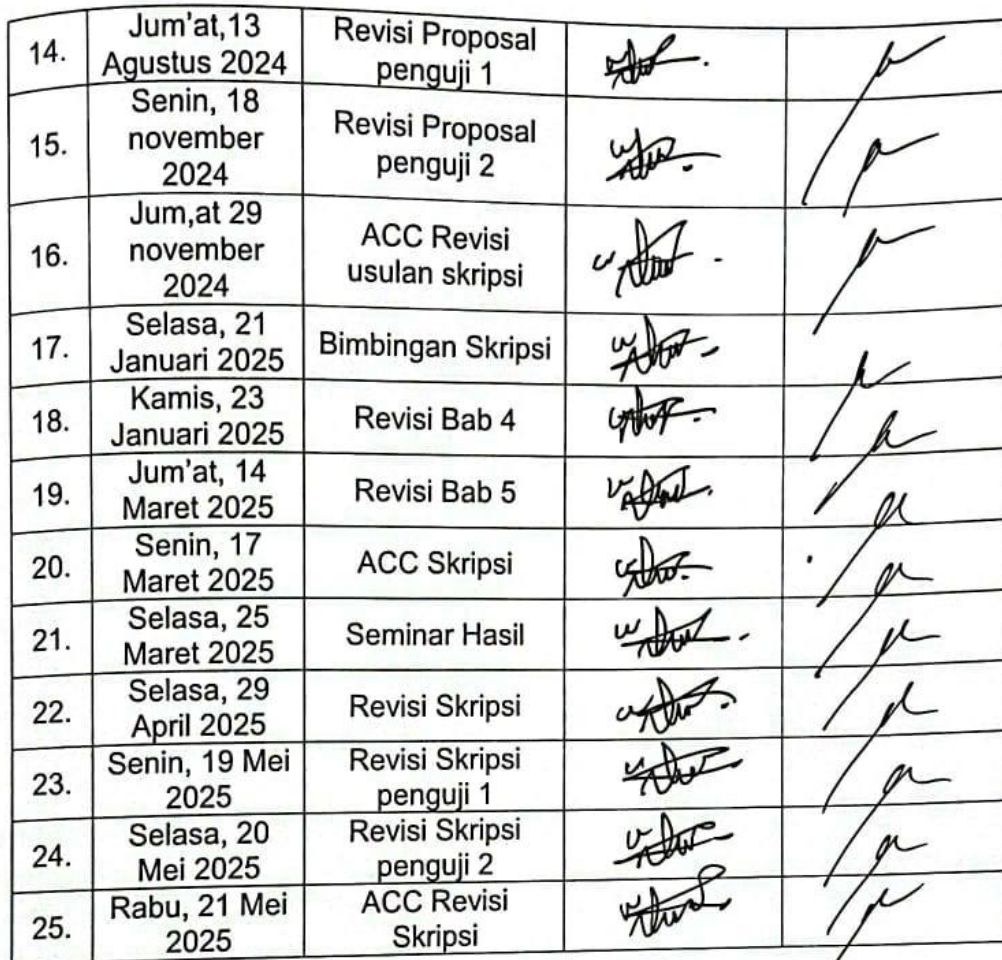 14.
Jum'at,13
Agustus 2024
Revisi Proposal
penguji 1
15.
Senin, 18
november
2024
Revisi Proposal
penguji 2
16.
Jum,at 29
november
2024
ACC Revisi
usulan skripsi
17.
Selasa, 21
Januari 2025
Bimbingan Skripsi
18.
Kamis, 23
Januari 2025
Revisi Bab 4
19.
Jum'at, 14
Maret 2025
Revisi Bab 5
20.
Senin, 17
Maret 2025
ACC Skripsi
21.
Selasa, 25
Maret 2025
Seminar Hasil
22.
Selasa, 29
April 2025
Revisi Skripsi
23.
Senin, 19 Mei
2025
Revisi Skripsi
penguji 1
24.
Selasa, 20
Mei 2025
Revisi Skripsi
penguji 2
25.
Rabu, 21 Mei
2025
ACC Revisi
Skripsi